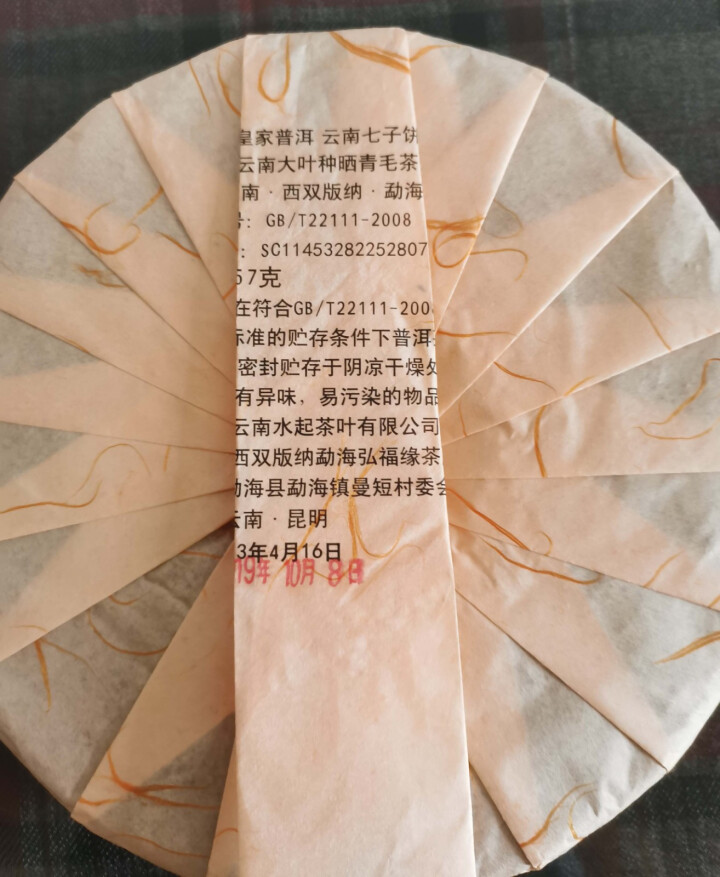 皇家普洱 云南七子饼
云南大叶种晒青毛茶
南·西双版纳·勐海
号: GB/T22111-2008
: SC11453282252807
57克
在符合GB/T22111-200
标准的贮存条件下普洱
密封贮存于阴凉干燥处
有异味，易污染的物品
云南水起茶叶有限公司
西双版纳勐海弘福缘茶
勐海县勐海镇曼短村委会
云南·昆明
3年4月16日
19年 10月 8日